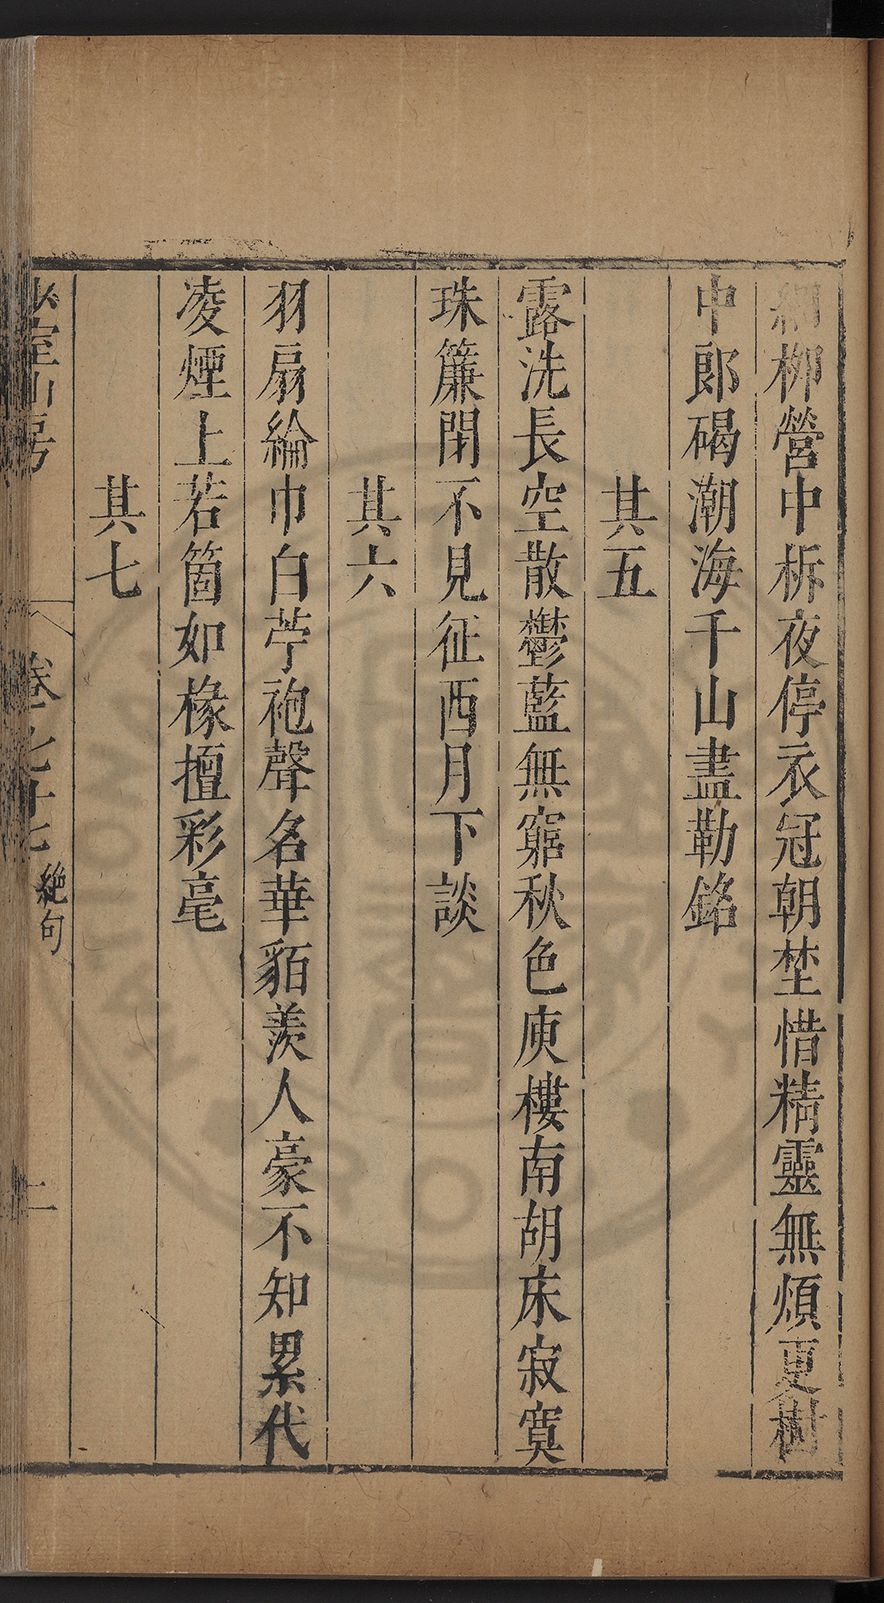 細柳營中柝夜停衣冠朝埜惜精靈無煩更樹
中郎碣潮海千山盡勒銘
其五
露洗長空散鬱藍無窮秋色庾樓南胡床寂寞
珠簾閉不見征西月下談
其六
羽扇綸巾白苧袍聲名華貊羨人豪不知累代
凌煙上若箇如椽擅彩毫
其七
少室山房
卷之七十七
絶句
二